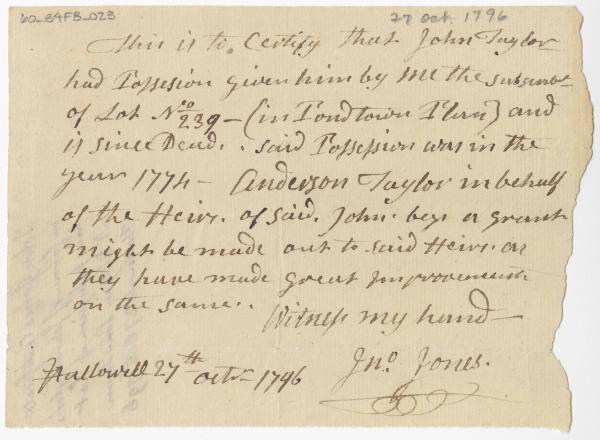 60_B4FB_023
27 Oct. 1796
This is to Certify that John Taylor
had Possesion given him by me the subscriber
of Lot No 239 — (in Pondtown Plan) and
is since Dead. . said Possession was in the
year 1774 — Anderson Taylor in behalf
of the Heirs. of said. John. begs a grant
might be made out to said Heirs. as
they have made great Improvements
on the same. .
Witness my hand —
Hallowell 27th octr 1796
Jno. Jones.